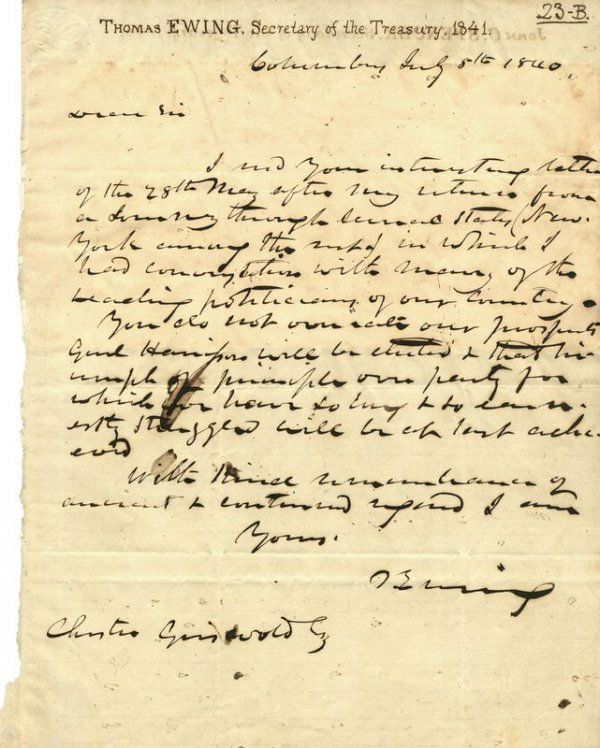 23-B.
THOMAS EWING, Secretary of the Treasury, 1841.
Columbus July 8th 1840
Dear Sir
I recd your interesting letter
of the 28th May after my return from
a Journey through several States (New-
York among the rest) in which I
had conversation with many of the
leading politicians of our Country.
You do not overrate our prospects
Genl Harrison will be elected & that tri-
umph of principle over party for
which you have so long & so earn-
estly struggled will be at last achi-
eved
With kind remembrance of
ancient & continued regard I am
Yours.
T Ewing
Griswold Esq